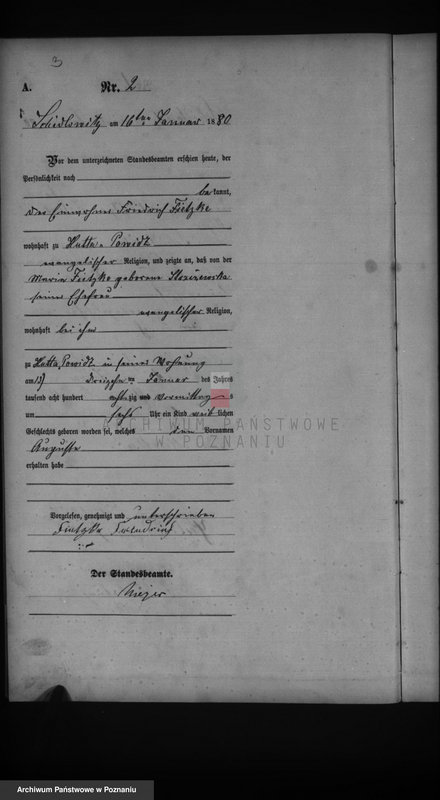 3
A. Nr. 2
Schidlowitz am 16ten Januar 1880
Vor dem unterzeichneten Standesbeamten erschien heute, der
Persönlichkeit nach
bekannt,
der Einwohner Friedrich Fietzke
wohnhaft zu Hutta-Powidz
evangelischer Religion, und zeigte an, daß von der
Marie Fietzke geborene
seiner Ehefrau
evangelischer Religion,
wohnhaft bei ihm
zu Hutta Powidz in seiner Wohnung
am 13 dreizehnten Januar des Jahres
tausend acht hundert achtzig und Vormittags
um sechs Uhr ein Kind weiblichen
Geschlechts geboren worden sei, welches den Vornamen
Auguste
erhalten habe
Vorgelesen, genehmigt und unterschrieben
Fietzke Friedrich
Der Standesbeamte.
ARCHIWUM PAŃSTWOWE
W POZNANIU
Archiwum Państwowe w Poznaniu